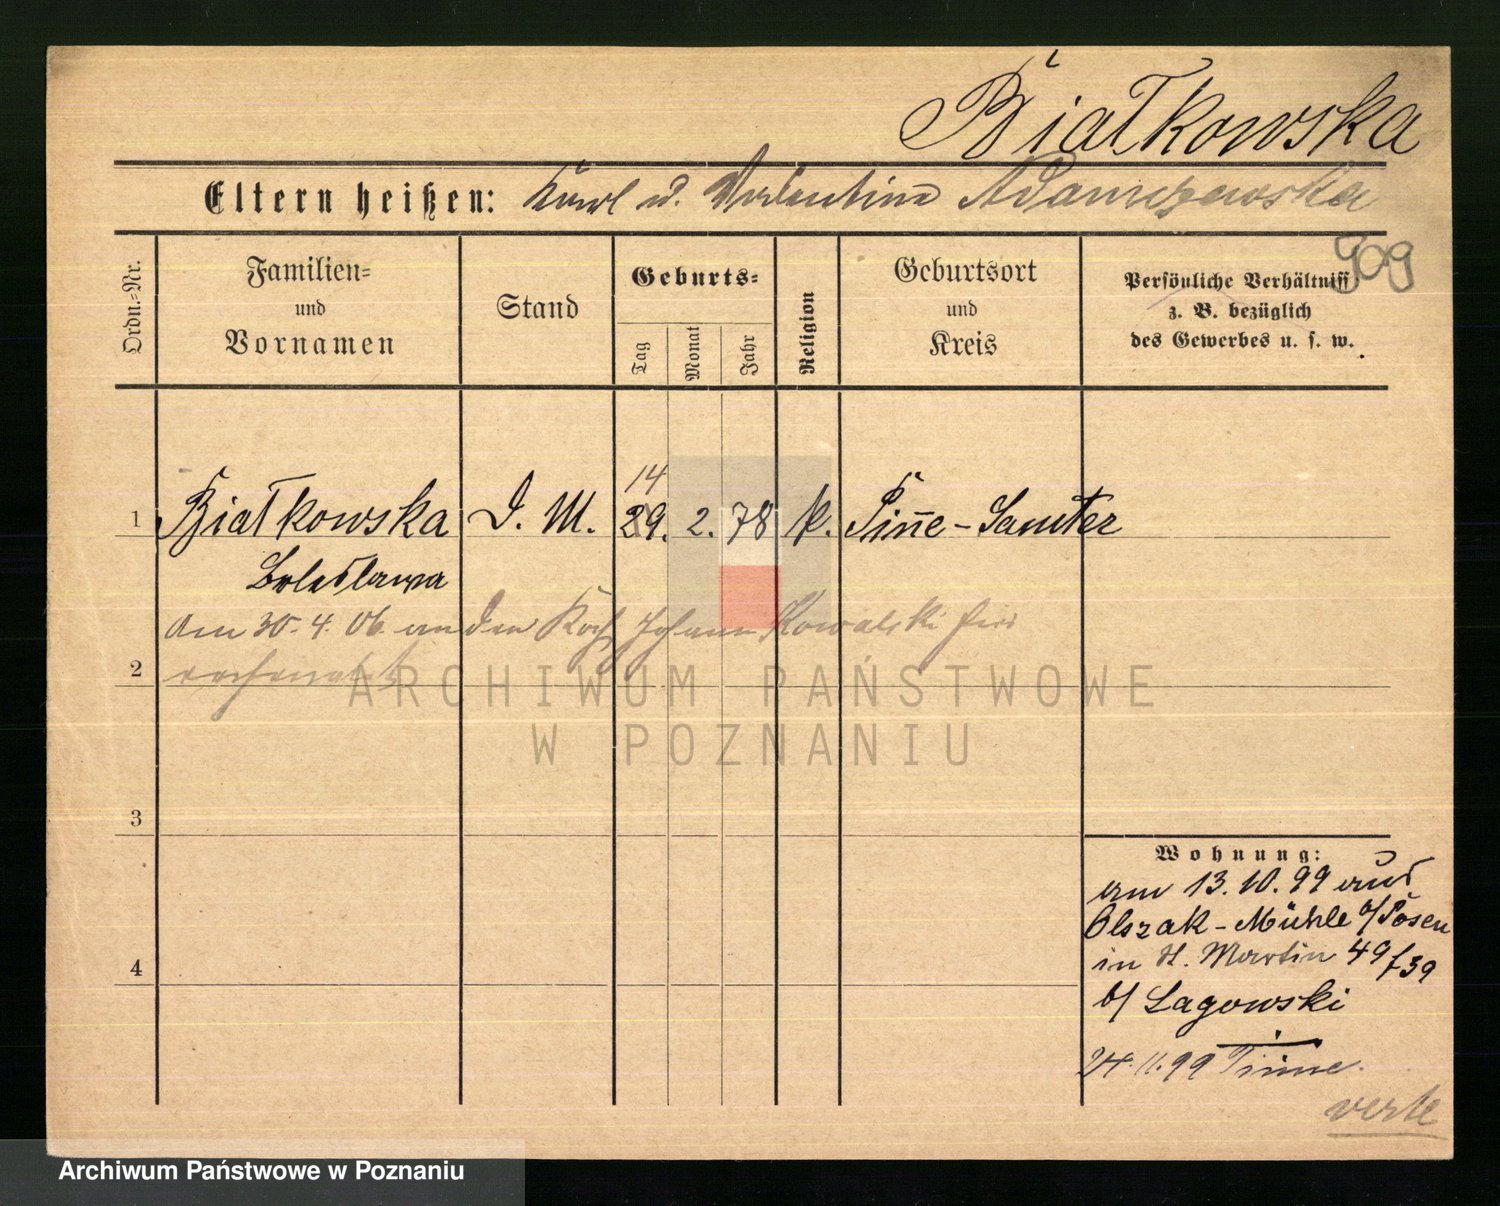 Białkowska
Eltern heißen: Karl u. Valentina Adamczewska
909
Ordn.-Nr.
Familien-
und
Vornamen
Stand
Geburts-
Tag
Monat
Jahr
Religion
Geburtsort
und
Kreis
Persönliche Verhältniss
z. B. bezüglich
des Gewerbes u. s. w.
14
1 Białkowska D. M. 29. 2. 78 k. Pinne - Samter
Boleslawa
Am 30.4.06 an den Koch Johann Kowalski hier
2
ARCHIWUM PAŃSTWOWE
W POZNANIU
3
4
Wohnung:
am 13.10.99 aus
Olszak - Mühle b/Posen
in St. Martin 49 f 39
b/ Lagowski
24.11.99 Pinne.
verte
Archiwum Państwowe w Poznaniu